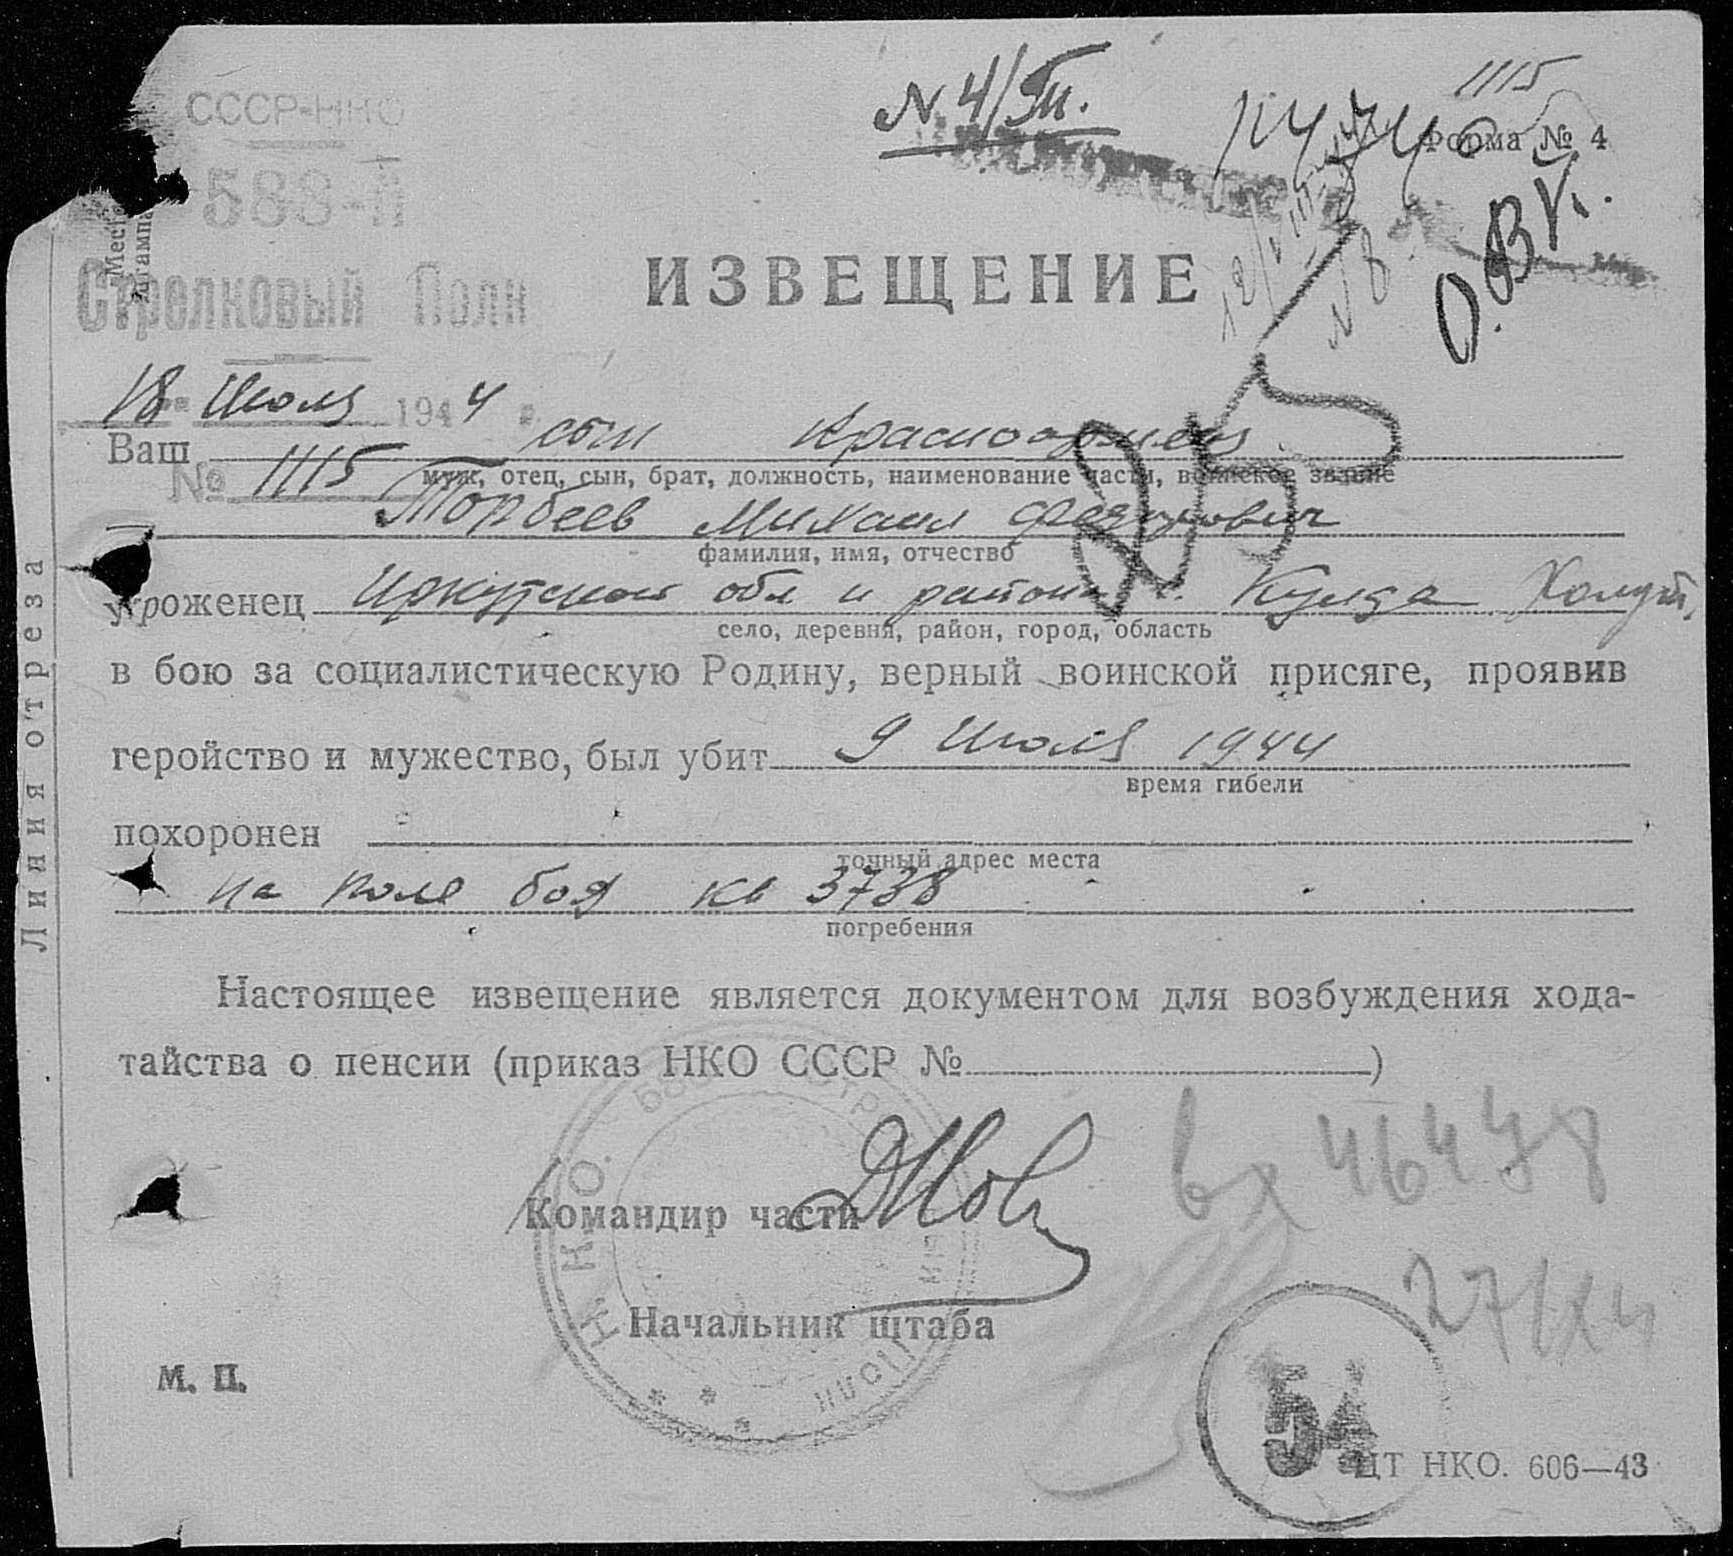 N 4/
1115
Форма № 4
О.В.К.
СССР-НКО
588-й
Место штампа
Стрелковый Полк
ИЗВЕЩЕНИЕ
18 Июля 1944
Ваш сын красноармеец
№ 1115
муж, отец, сын, брат, должность, наименование части, воинское звание
Торбеев Михаил Федорович
фамилия, имя, отчество
уроженец Иркутской обл и района с. Кумда
село, деревня, район, город, область
в бою за социалистическую Родину, верный воинской присяге, проявив
геройство и мужество, был убит 9 Июля 1944
время гибели
похоронен
точный адрес места
на поле боя кв 3738
погребения
Настоящее извещение является документом для возбуждения хода-
тайства о пенсии (приказ НКО СССР № )
вх 46478
Командир части
Начальник штаба
М. П.
54
ЦТ НКО. 606—43
Линия отреза